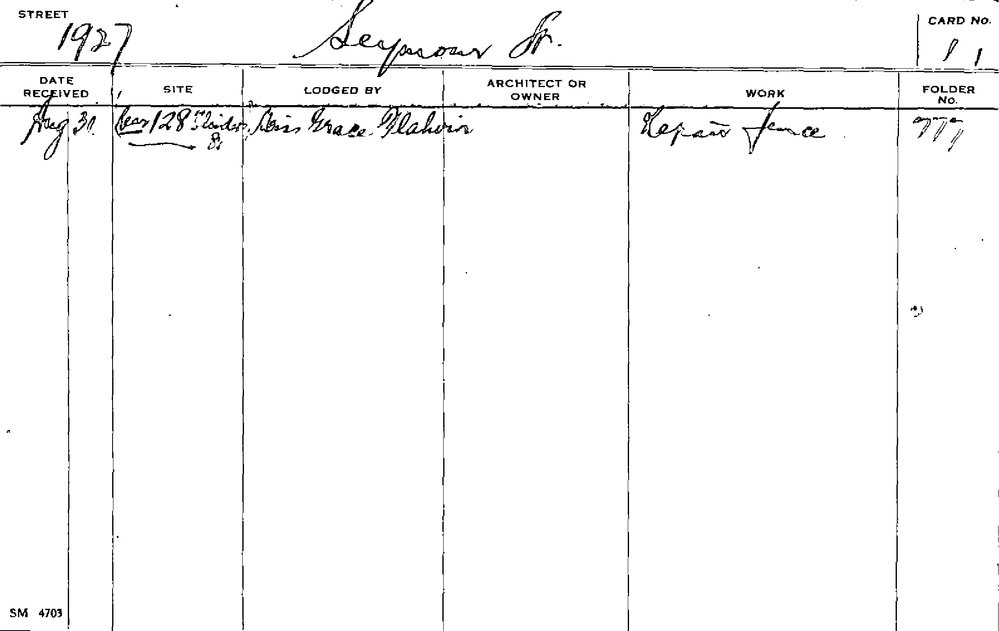 STREET
1927 Seymour St.
CARD No.
1 1
DATE RECEIVED SITE LODGED BY ARCHITECT OR OWNER WORK FOLDER No.
Aug 30 rear 128 Flinders Miss Grace Repair fence 777
St
SM 4703